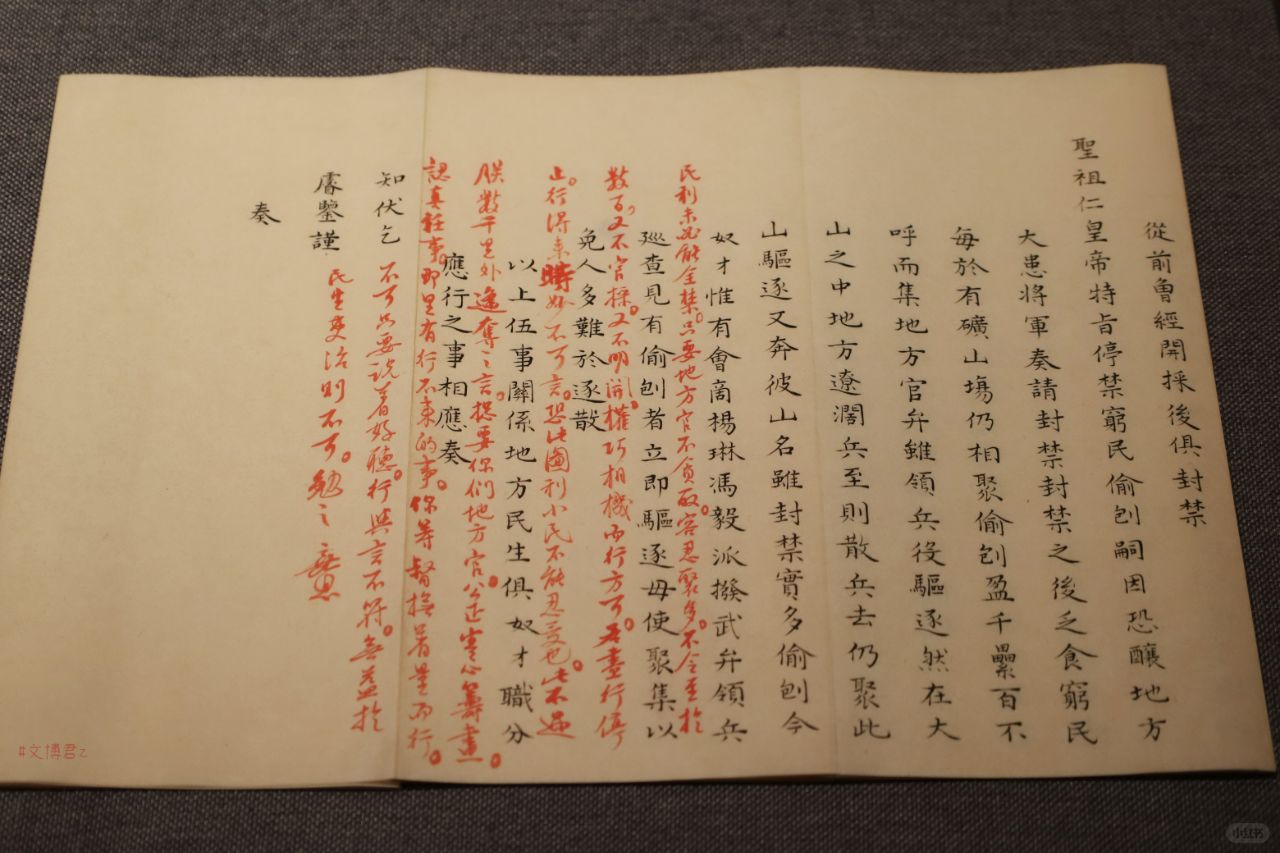 從前曾經開採後俱封禁
聖祖仁皇帝特旨停禁窮民偷刨嗣因恐釀地方
大患將軍奏請封禁封禁之後乏食窮民
每於有礦山塲仍相聚偷刨盈千纍百不
呼而集地方官弁雖領兵役驅逐然在大
山之中地方遼濶兵至則散兵去仍聚此
山驅逐又奔彼山名雖封禁實多偷刨今
民利未必能全禁。只要地方官不貪取。容忍聚多。不令至於
奴才惟有會啇楊琳馮毅派撥武弁領兵
數百。又不官採。又不明開。權巧相機而行方可。若盡行停
廵查見有偷刨者立即驅逐毋使聚集以
免人多難於逐散
止。行得來時妙不可言。恐此圖利小民不能忍受也。此不過
以上伍事關係地方民生俱奴才職分
朕數千里外遙奪之言。總要你們地方官公籌畫。
應行之事相應奏
認真任事。即有行不來的事。你等督撫着量而行。
知伏乞
不可只要說着好聽。行與言不符。無益於
睿鑒謹
民生吏治則不可。勉之慎
奏
#文博君z
小红书